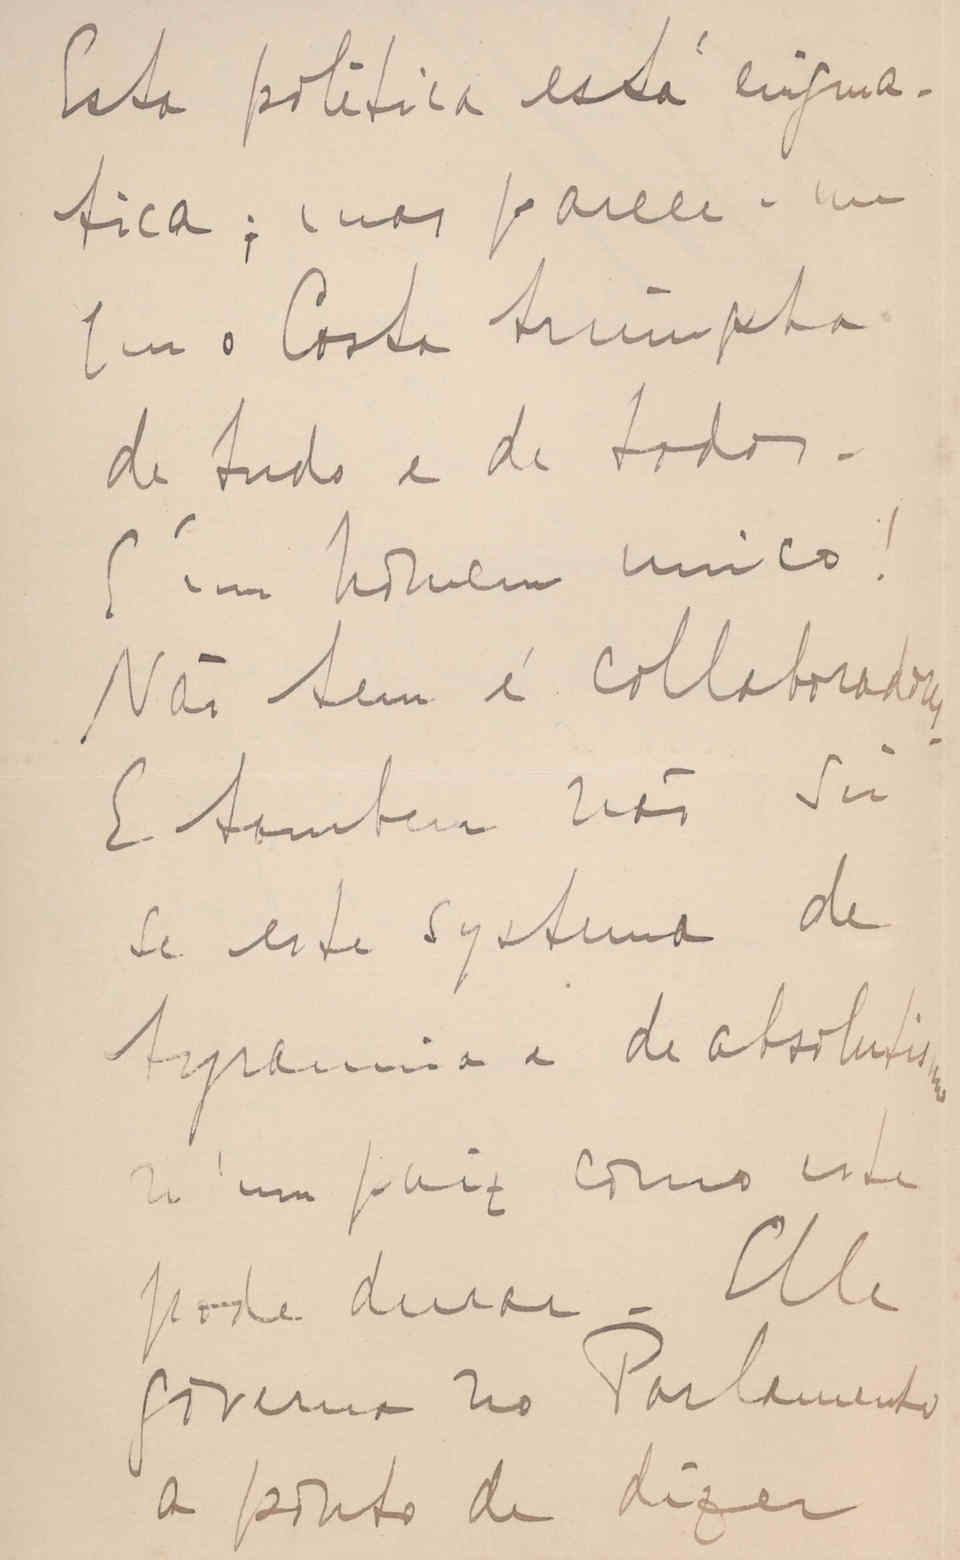 Esta politica está enigma-
tica; mas parece-me
que o Costa triumpha
de tudo e de todos.
É um homem unico!
Não tem é collaboradores.
E tambem não sei
se este systema de
tyrannia e de absolutismo
n'um paiz como este
pode durar. Elle
governa no Parlamento
a ponto de dizer